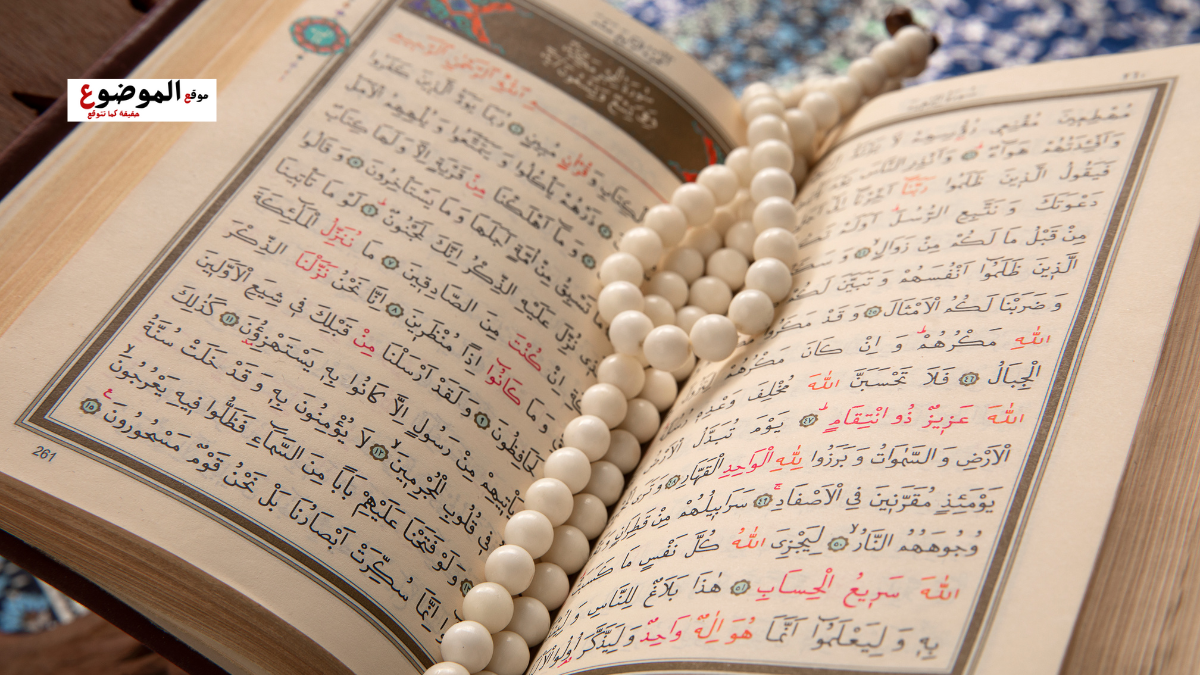 موقع الموضوع
حقيقة كما تتوقع
٢٦٠
مُهْطِعِينَ مُقْنِعِي رُؤُسِهِمْ لَا
وَاَفْـِٔدَتُهُمْ هَوَٓاءٌ وَاَنْذِرِ النَّاسَ
فَيَقُولُ الَّذِينَ ظَلَمُوا رَبَّنَٓا اَخِّرْنَٓا
دَعْوَتَكَ وَنَتَّبِعِ الرُّسُلَ اَوَلَمْ
مِنْ قَبْلُ مَا لَكُمْ مِنْ زَوَالٍ
الَّذِينَ ظَلَمُٓوا اَنْفُسَهُمْ وَتَبَيَّنَ لَكُمْ
وَضَرَبْنَا لَكُمُ الْاَمْثَالَ وَقَدْ مَكَرُوا
اللّٰهِ مَكْرُهُمْ وَاِنْ كَانَ مَكْرُهُمْ
الْجِبَالُ فَلَا تَحْسَبَنَّ اللّٰهَ مُخْلِفَ وَعْدِهِ
اللّٰهَ عَزِيزٌ ذُو انْتِقَامٍ يَوْمَ تُبَدَّلُ الْاَرْضُ
الْاَرْضِ وَالسَّمٰوَاتُ وَبَرَزُوا لِلّٰهِ الْوَاحِدِ الْقَهَّارِ وَتَرَى
يَوْمَئِذٍ مُقَرَّنِينَ فِي الْاَصْفَادِ سَرَابِيلُهُمْ مِنْ قَطِرَانٍ
وُجُوهَهُمُ النَّارُ لِيَجْزِيَ اللّٰهُ كُلَّ نَفْسٍ مَا كَسَبَتْ
اللّٰهَ سَرِيعُ الْحِسَابِ هٰذَا بَلَاغٌ لِلنَّاسِ
بِهِ وَلِيَعْلَمُٓوا اَنَّمَا هُوَ اِلٰهٌ وَاحِدٌ وَلِيَذَّكَّرَ اُولُوا
وَقُرْاٰنٍ مُبِينٍ رُبَمَا يَوَدُّ الَّذِينَ كَفَرُوا
ذَرْهُمْ يَأْكُلُوا وَيَتَمَتَّعُوا وَيُلْهِهِمُ الْاَمَلُ
وَمَٓا اَهْلَكْنَا مِنْ قَرْيَةٍ اِلَّا وَلَهَا كِتَابٌ
تَسْبِقُ مِنْ اُمَّةٍ اَجَلَهَا وَمَا يَسْتَأْخِرُونَ وَقَالُوا
نُزِّلَ عَلَيْهِ الذِّكْرُ اِنَّكَ لَمَجْنُونٌ لَوْ مَا تَأْتِينَا
اِنْ كُنْتَ مِنَ الصَّادِقِينَ مَا نُنَزِّلُ الْمَلٰٓئِكَةَ
وَمَا كَانُٓوا اِذًا مُنْظَرِينَ اِنَّا نَحْنُ نَزَّلْنَا الذِّكْرَ
لَحَافِظُونَ وَلَقَدْ اَرْسَلْنَا مِنْ قَبْلِكَ فِي شِيَعِ الْاَوَّلِينَ
يَأْتِيهِمْ مِنْ رَسُولٍ اِلَّا كَانُوا بِهِ يَسْتَهْزِؤُنَ كَذٰلِكَ
فِي قُلُوبِ الْمُجْرِمِينَ لَا يُؤْمِنُونَ بِهِ وَقَدْ خَلَتْ سُنَّةُ
وَلَوْ فَتَحْنَا عَلَيْهِمْ بَابًا مِنَ السَّمَٓاءِ فَظَلُّوا فِيهِ يَعْرُجُونَ
اِنَّمَا سُكِّرَتْ اَبْصَارُنَا بَلْ نَحْنُ قَوْمٌ مَسْحُورُونَ
261